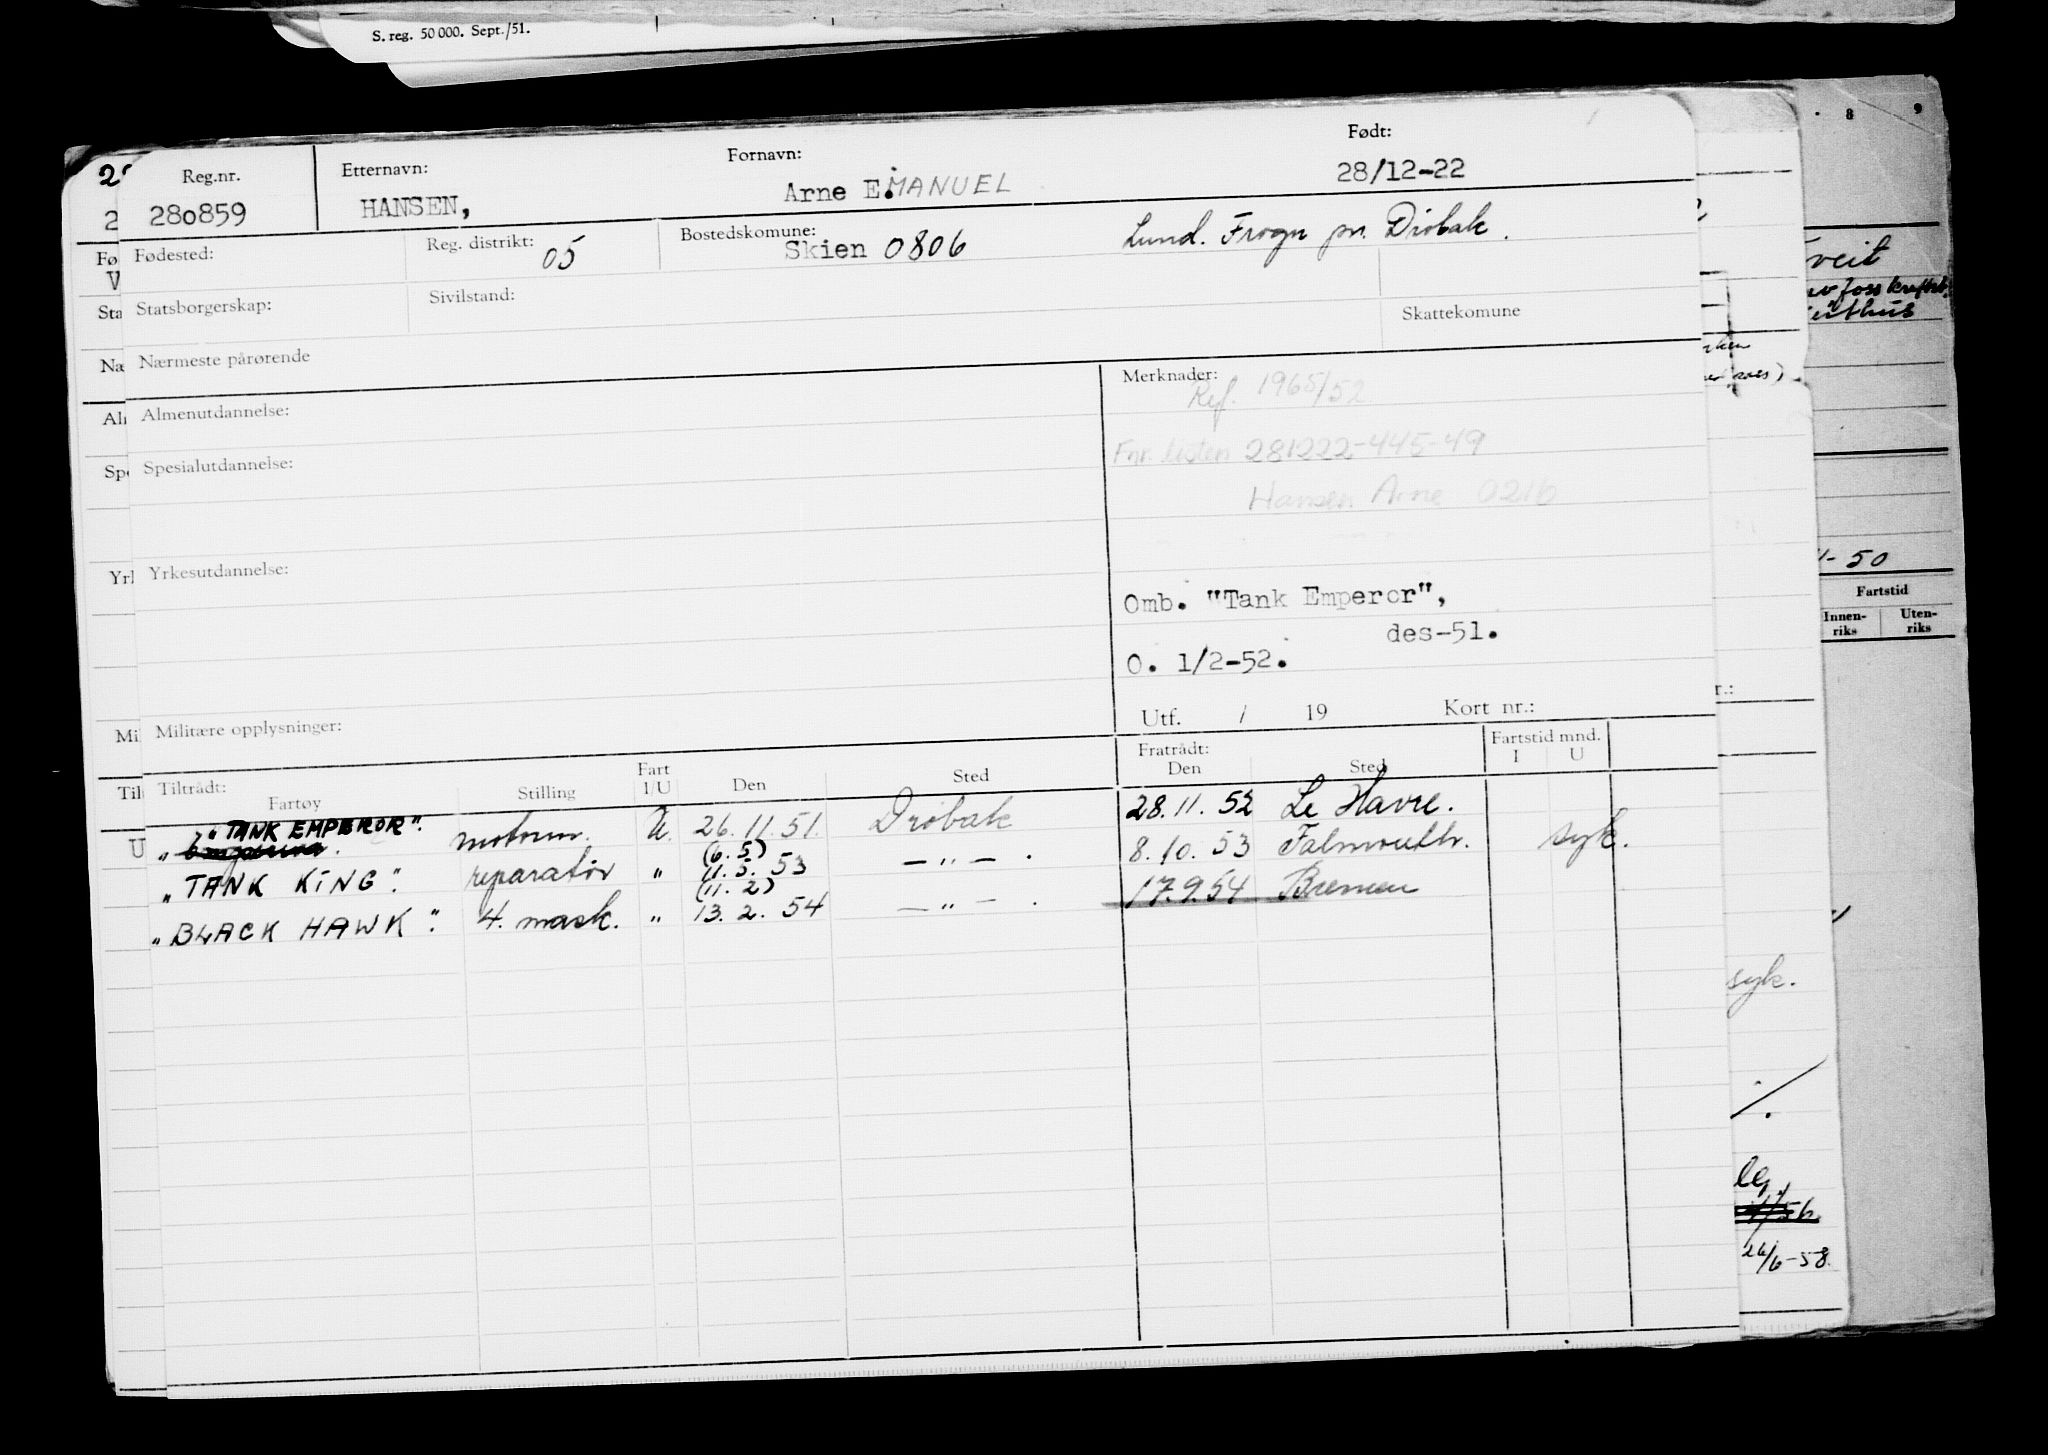 S. reg. 50 000. Sept./51.
8 9
Reg.nr. Etternavn: Fornavn: Født:
280859 HANSEN, Arne E.MANUEL 28/12-22
Fødested: Reg. distrikt: 05 Bostedskomune: Skien 0806 Lund. Frogn pr. Drøbak.
Statsborgerskap: Sivilstand: Skattekomune
Nærmeste pårørende
Almenutdannelse: Merknader:
Ref. 1965/52
Spesialutdannelse: Fnr. listen 281222-445-49
Hansen Arne 0216
Yrkesutdannelse:
Omb. "Tank Emperor",
des-51.
O. 1/2-52.
Militære opplysninger: Utf. / 19 Kort nr.:
Tiltrådt: Fratrådt: Fartstid mnd.
Fartøy Stilling Fart I/U Den Sted Den Sted I U
"TANK EMPEROR". motorm. U. 26.11.51. Drøbak 28.11.52 Le Havre.
(6.5)
"TANK KING". reparatør " 11.5.53 — " — . 8.10.53 Falmouth. syk.
(11.2)
"BLACK HAWK". 4. mask. " 13.2.54 — " — . 17.9.54 Bremen
veit
- 50
Fartstid
Innen-riks Uten-riks
syk.
26/6-58